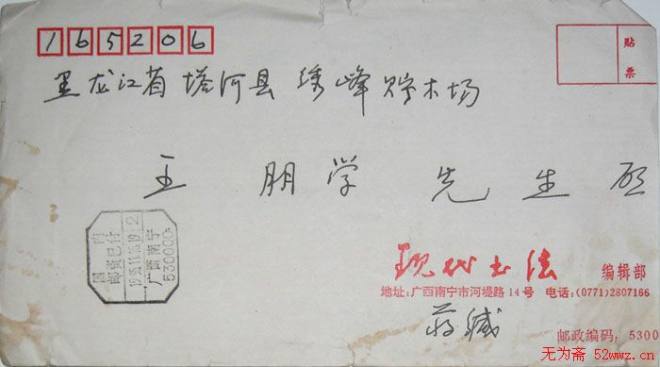 165206
贴
票
黑龙江省塔河县绣峰贮木场
王朋学先生启
国内
邮资已付
广西南宁
530000
现代书法 编辑部
地址:广西南宁市河堤路14号 电话:(0771)2807166
蒋缄
邮政编码:5300
无为斋 52wwz.cn